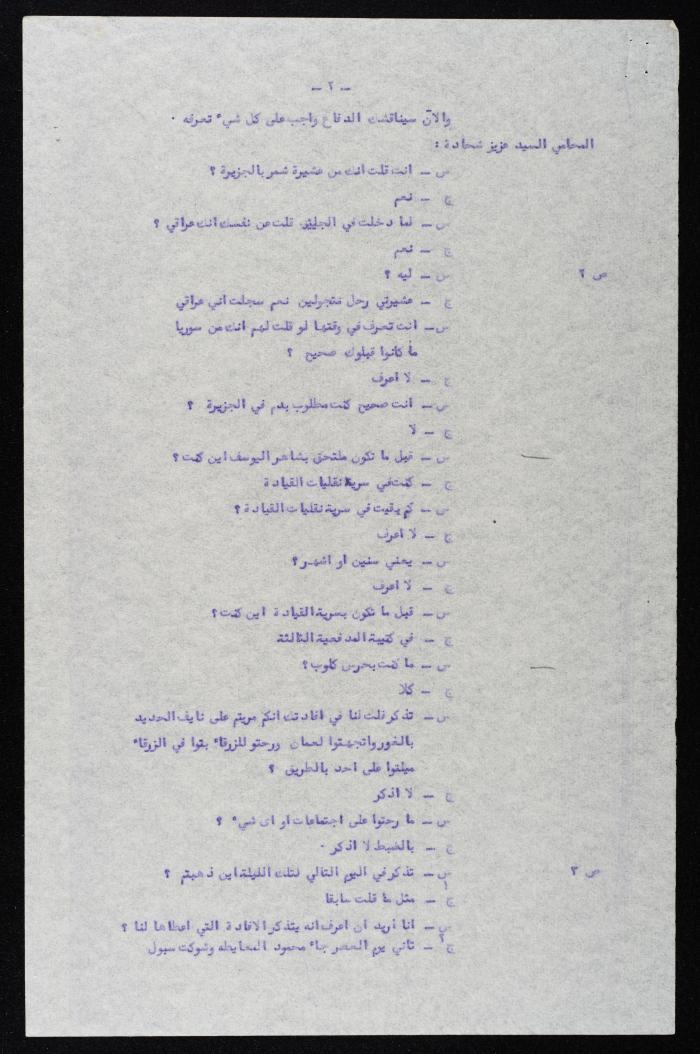 - ٢ -
والآن سيناقشك الدفاع واجب على كل شيء تعرفه .
المحامي السيد عزيز شحادة :
س - انت قلت انك من عشيرة شمر بالجزيرة ؟
ج - نعم
س - لما دخلت في الجيش قلت عن نفسك انك عراقي ؟
ج - نعم
ص ٢ س - ليه ؟
ج - عشيرتي رحل متجولين نعم سجلت اني عراقي
س - انت تعرف في وقتها لو قلت لهم انك من سوريا
ما كانوا قبلوك صحيح ؟
ج - لا اعرف
س - انت صحيح كنت مطلوب بدم في الجزيرة ؟
ج - لا
س - قبل ما تكون ملتحق بشاهر اليوسف اين كنت ؟
ج - كنت في سرية نقليات القيادة
س - كم بقيت في سرية نقليات القيادة ؟
ج - لا اعرف
س - يعني سنين او اشهر ؟
ج - لا اعرف
س - قبل ما تكون بسرية القيادة اين كنت ؟
ج - في كتيبة المدفعية الثالثة
س - ما كنت بحرس كلوب ؟
ج - كلا
س - تذكر قلت لنا في افادتك انكم مريتم على نايف الحديد
بالغور واتجهتوا لعمان ورحتو للزرقاء بتوا في الزرقاء
ميلتوا على احد بالطريق ؟
ج - لا اذكر
س - ما رحتوا على اجتماعات او اى شيء ؟
ج - بالضبط لا اذكر .
ص ٣ س - تذكر في اليوم التالي لتلك الليلة اين ذهبتم ؟
ج - مثل ما قلت سابقا
س - انا أريد ان اعرف انه يتذكر الافادة التي اعطاها لنا ؟
ج - ثاني يوم العصر جاء محمود المعايطه وشوكت سبول